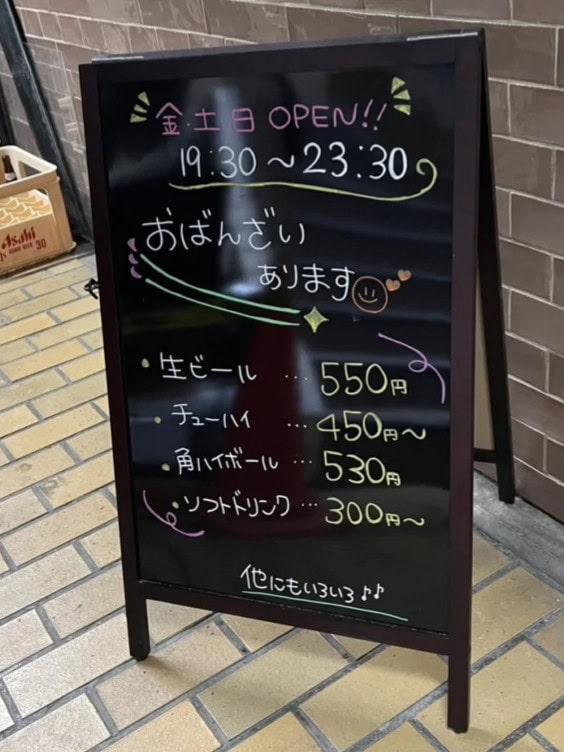 金・土日 OPEN!!
19:30〜23:30
おばんざい
あります
・生ビール … 550円
・チューハイ … 450円〜
・角ハイボール … 530円
・ソフトドリンク … 300円〜
他にもいろいろ♪♪
Asahi
30